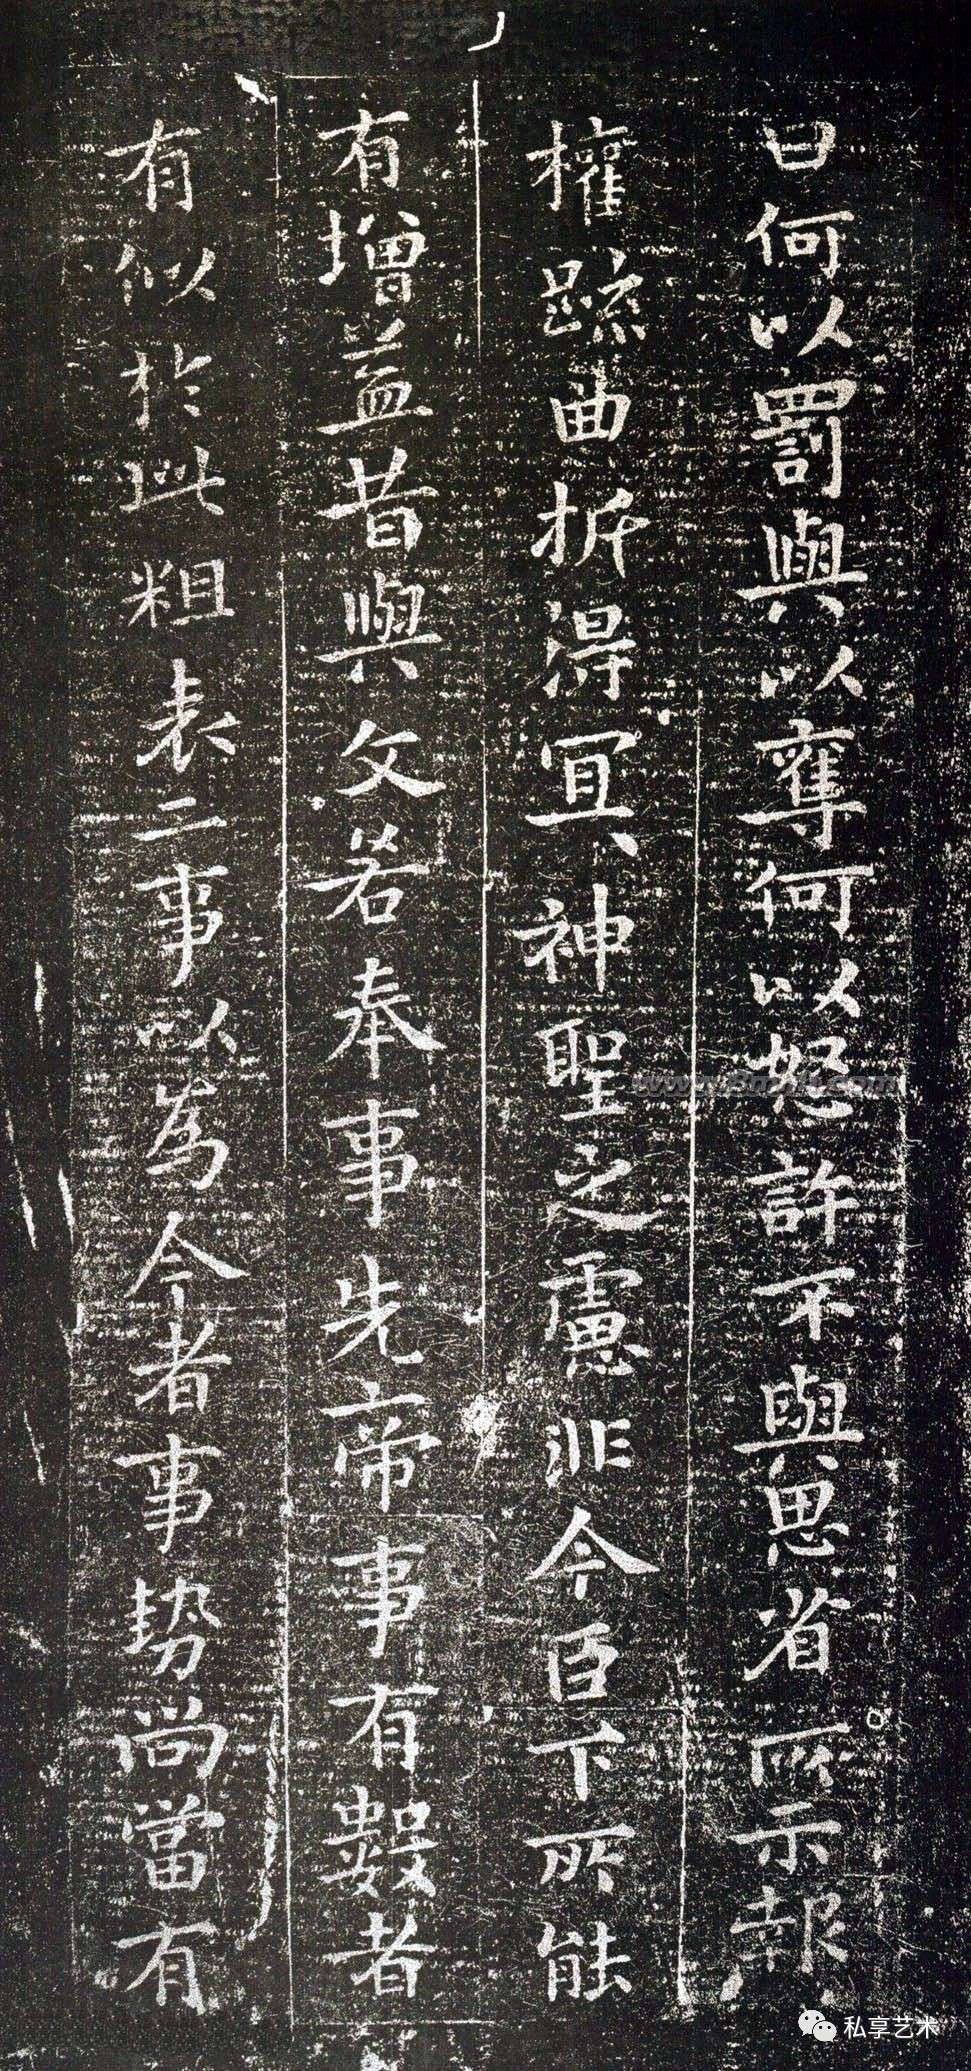 曰何以罰與以奪何以怒許不與思省所示報
權疏曲折得冝神聖之慮非今臣下所能
有增益昔與文若奉事先帝事有數者
有似於此粗表二事以為今者事勢尚當有
私享艺术